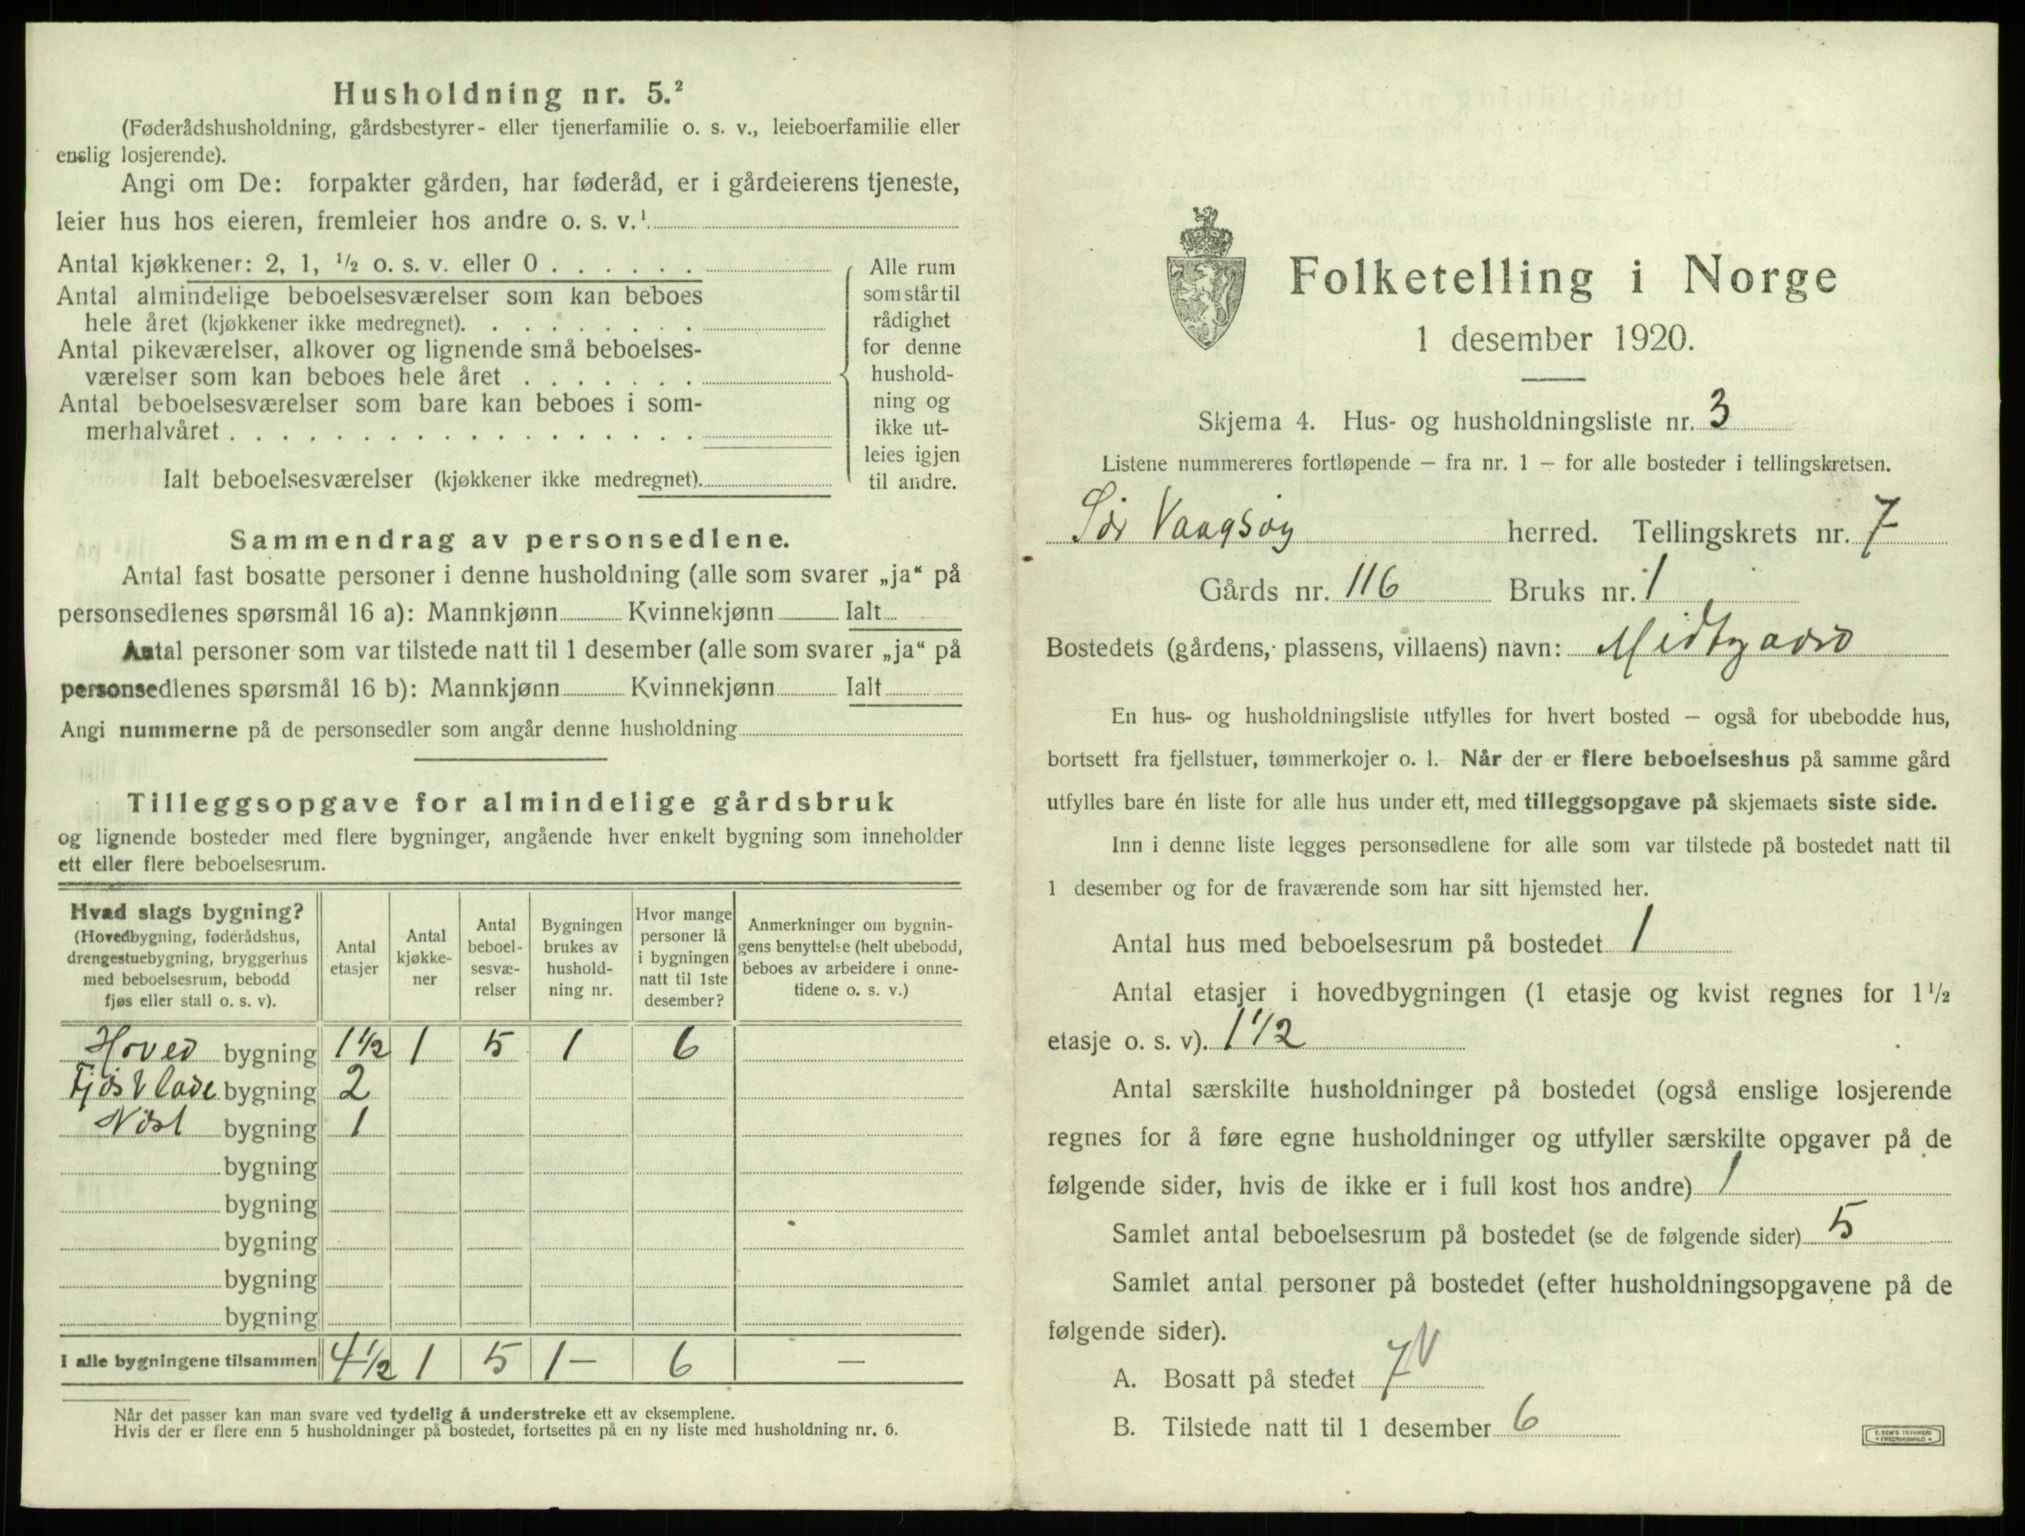 Husholdning nr. 5.²
(Føderådshusholdning, gårdsbestyrer- eller tjenerfamilie o. s. v., leieboerfamilie eller
enslig losjerende).
Angi om De: forpakter gården, har føderåd, er i gårdeierens tjeneste,
leier hus hos eieren, fremleier hos andre o. s. v.¹
Antal kjøkkener: 2, 1, ½ o. s. v. eller 0
Antal almindelige beboelsesværelser som kan beboes
hele året (kjøkkener ikke medregnet).
Antal pikeværelser, alkover og lignende små beboelses-
værelser som kan beboes hele året
Antal beboelsesværelser som bare kan beboes i som-
merhalvåret
Ialt beboelsesværelser (kjøkkener ikke medregnet).
Alle rum
som står til
rådighet
for denne
hushold-
ning og
ikke ut-
leies igjen
til andre.
Sammendrag av personsedlene.
Antal fast bosatte personer i denne husholdning (alle som svarer „ja“ på
personsedlenes spørsmål 16 a): Mannkjønn Kvinnekjønn Ialt
Antal personer som var tilstede natt til 1 desember (alle som svarer „ja“ på
personsedlenes spørsmål 16 b): Mannkjønn Kvinnekjønn Ialt
Angi nummerne på de personsedler som angår denne husholdning
Tilleggsopgave for almindelige gårdsbruk
og lignende bosteder med flere bygninger, angående hver enkelt bygning som inneholder
ett eller flere beboelsesrum.
Hvad slags bygning?
(Hovedbygning, føderådshus,
drengestuebygning, bryggerhus
med beboelsesrum, bebodd
fjøs eller stall o. s. v).
Antal
etasjer
Antal
kjøkke-
ner
Antal
beboel-
sesvæ-
relser
Bygningen
brukes av
hushold-
ning nr.
Hvor mange
personer lå
i bygningen
natt til 1ste
desember?
Anmerkninger om bygnin-
gens benyttelse (helt ubebodd,
beboes av arbeidere i onne-
tidene o. s. v.)
Hoved bygning 1½ 1 5 1 6
Fjøs & lade bygning 2
Nøst bygning 1
bygning
bygning
bygning
bygning
bygning
I alle bygningene tilsammen 4½ 1 5 1 — 6 —
Når det passer kan man svare ved tydelig å understreke ett av eksemplene.
Hvis der er flere enn 5 husholdninger på bostedet, fortsettes på en ny liste med husholdning nr. 6.
Folketelling i Norge
1 desember 1920.
Skjema 4. Hus- og husholdningsliste nr. 3
Listene nummereres fortløpende — fra nr. 1 — for alle bosteder i tellingskretsen.
Sør Vaagsøy herred. Tellingskrets nr. 7
Gårds nr. 116 Bruks nr. 1
Bostedets (gårdens, plassens, villaens) navn: Midtgaard
En hus- og husholdningsliste utfylles for hvert bosted — også for ubebodde hus,
bortsett fra fjellstuer, tømmerkojer o. l. Når der er flere beboelseshus på samme gård
utfylles bare én liste for alle hus under ett, med tilleggsopgave på skjemaets siste side.
Inn i denne liste legges personsedlene for alle som var tilstede på bostedet natt til
1 desember og for de fraværende som har sitt hjemsted her.
Antal hus med beboelsesrum på bostedet 1
Antal etasjer i hovedbygningen (1 etasje og kvist regnes for 1½
etasje o. s. v). 1½
Antal særskilte husholdninger på bostedet (også enslige losjerende
regnes for å føre egne husholdninger og utfyller særskilte opgaver på de
følgende sider, hvis de ikke er i full kost hos andre) 1
Samlet antal beboelsesrum på bostedet (se de følgende sider) 5
Samlet antal personer på bostedet (efter husholdningsopgavene på de
følgende sider).
A. Bosatt på stedet 7 V
B. Tilstede natt til 1 desember 6